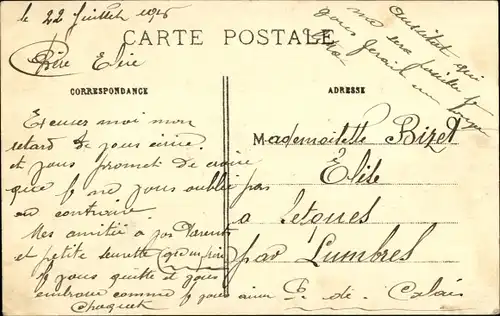 le 22 Juillet 1916
CARTE POSTALE
Aussitôt qui
me sera possible
vous ferait un
Chère Elise
CORRESPONDANCE
ADRESSE
Excusez moi mon
retard de vous écrire
et vous promet de croire
que je ne vous oublie pas
au contraire
Mes amitié a vos Parents
et petite
je vous quitte et vous
embrasse comme je vous aime
Mademoiselle Bizet
Élise
a Setques
par Lumbres
P. de. Calais